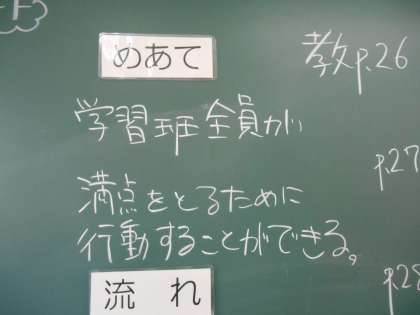 めあて
教p.26
学習班全員が、
p.27
満点をとるために
行動することができる。
p.28
流れ